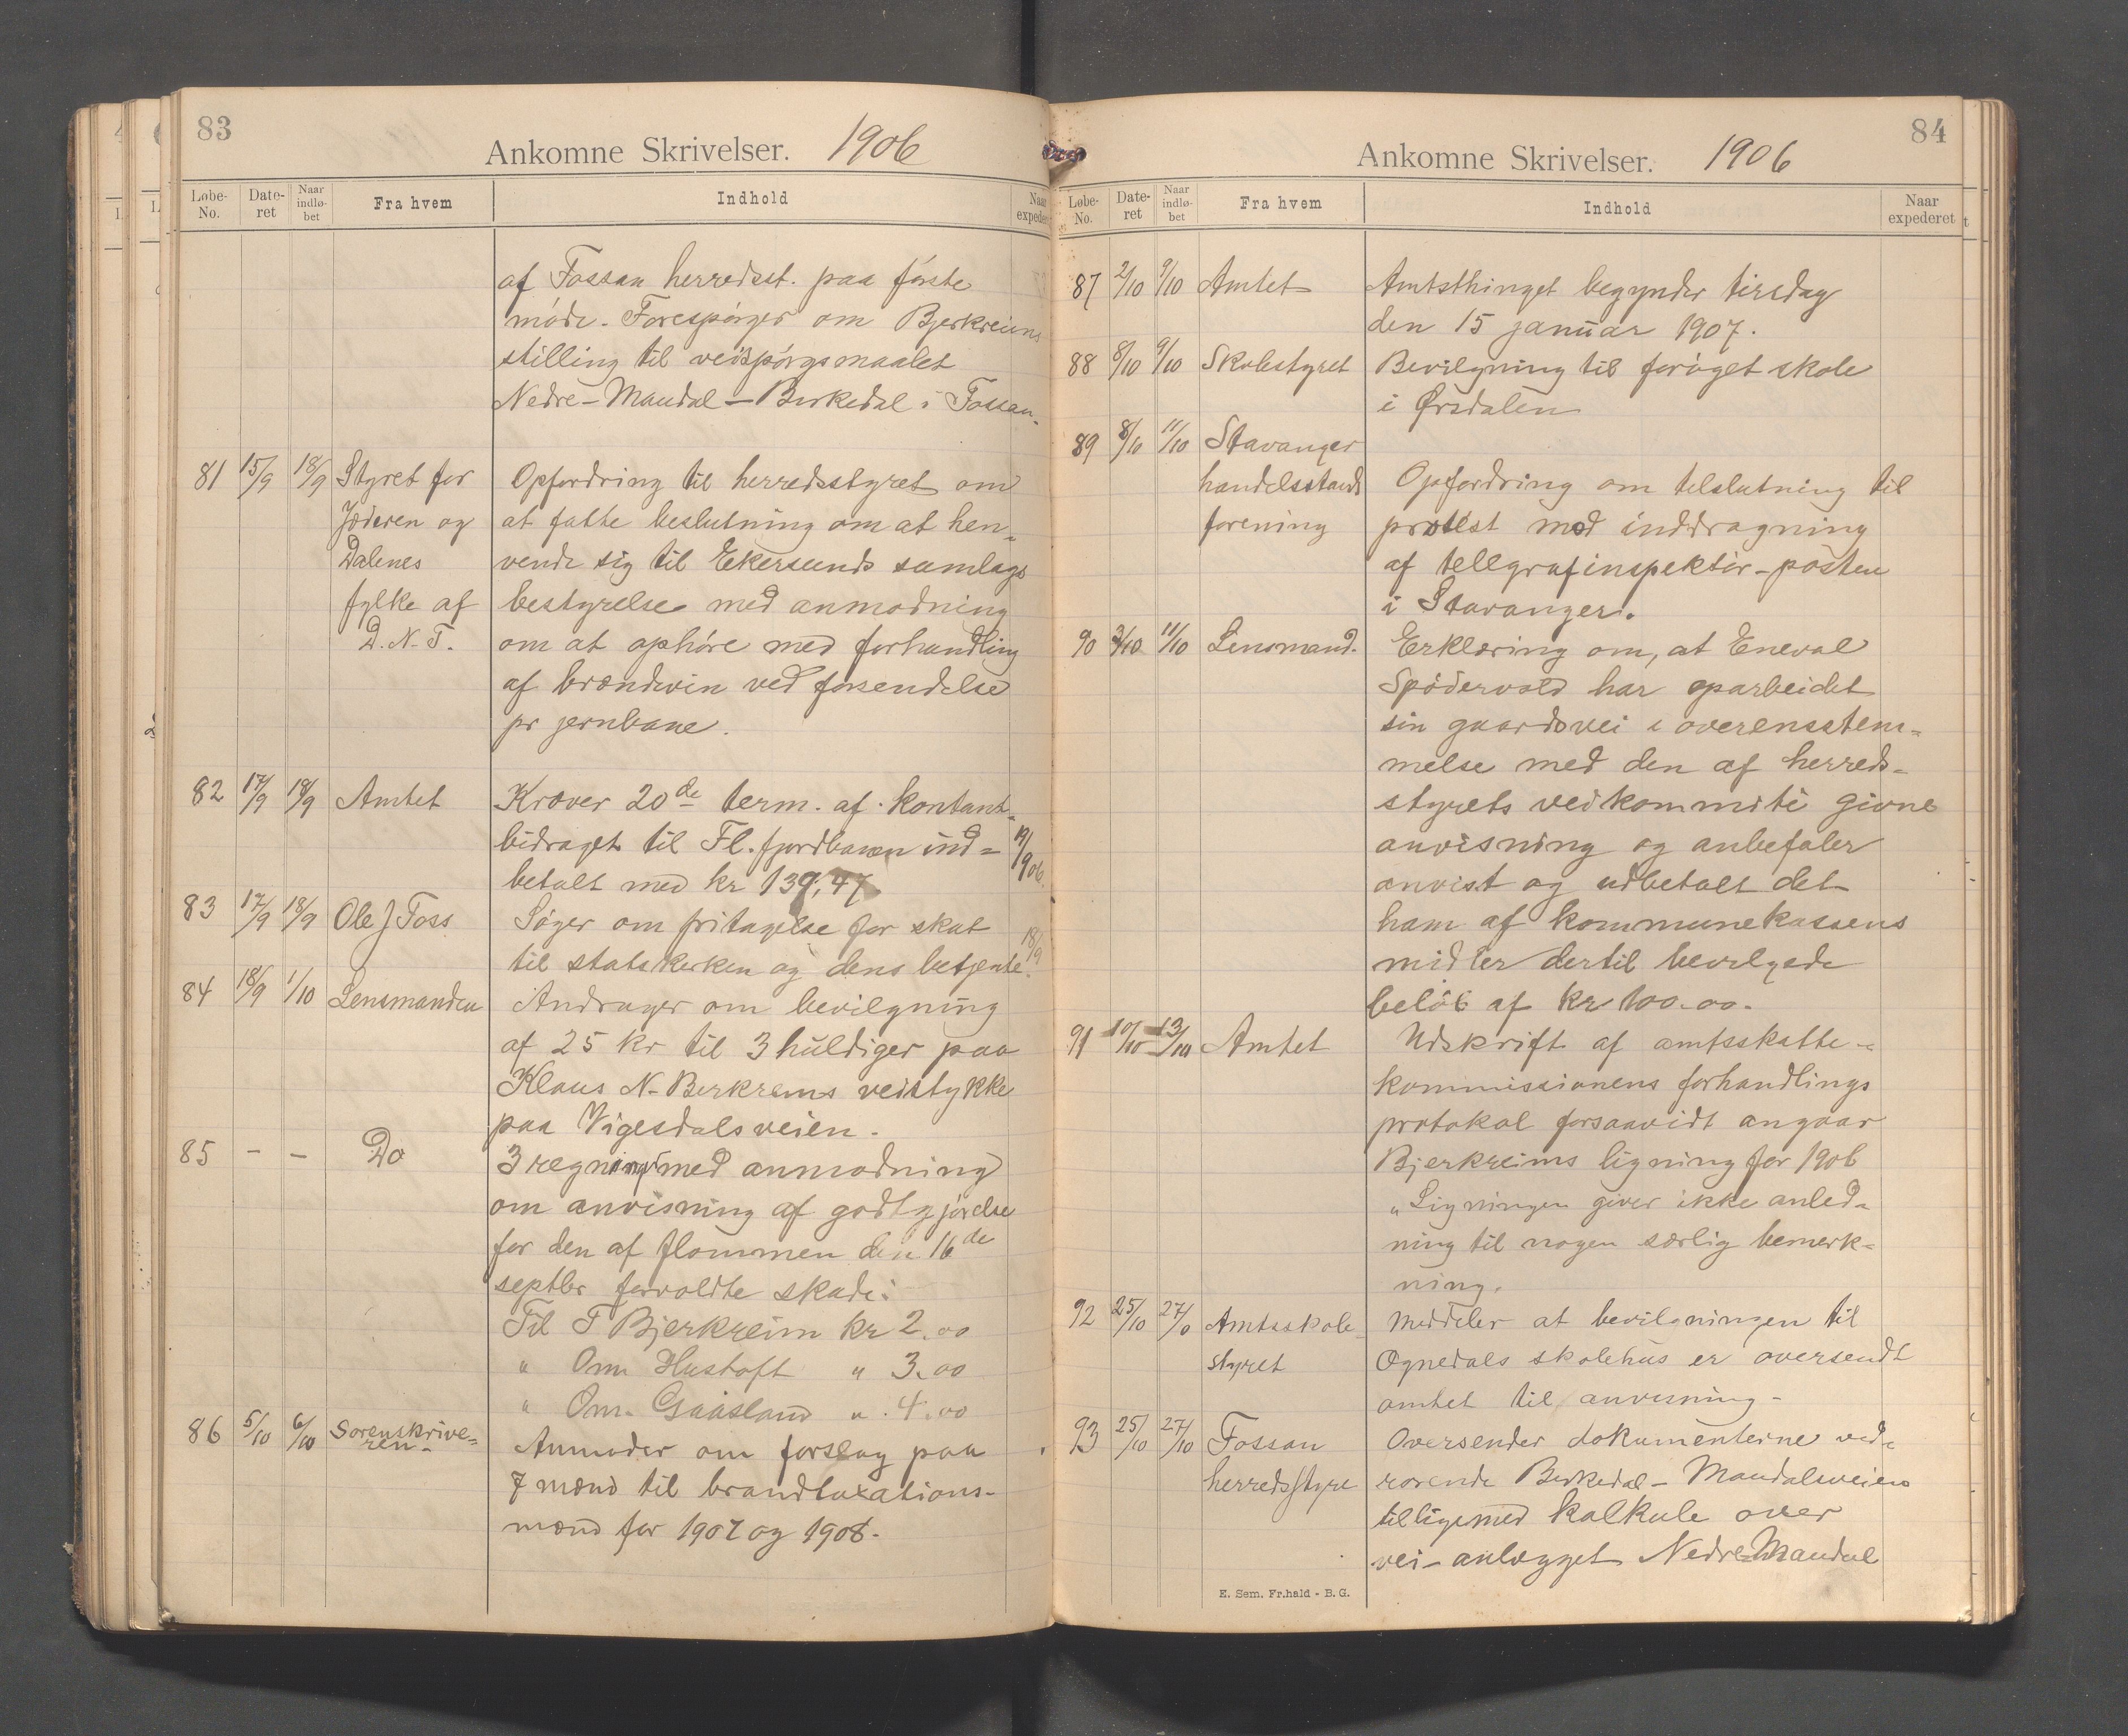 83
Ankomne Skrivelser. 1906
Løbe-No. Dateret Naar indløbet Fra hvem Indhold Naar expederet
af Fossan herredsst. paa første
møde. Forespørger om Bjerkreims
stilling til veispørgsmaalet
Nedre-Maudal-Birkedal i Fossan.
81 15/9 18/9 Styret for Opfordring til herredsstyret om
Jæderen og at fatte beslutning om at hen-
Dalenes vende sig til Ekersunds samlags
fylke af bestyrelse med anmodning
D.N.T. om at ophøre med forhandling
af brændevin ved forsendelse
pr jernbane.
82 17/9 18/9 Amtet Kræver 20de term. af kontant-
bidraget til Fl.fjordbanen ind-
betalt med kr 139,47. 19/9 06.
83 17/9 18/9 Ole J Foss Søger om fritagelse for skat
til statskirken og dens betjente. 18/9
84 18/9 1/10 Lensmanden Andrager om bevilgning
af 25 kr til 3 huldiger paa
Klaus N. Berkreims veistykke
paa Vigesdalsveien.
85 - - Do 3 regninger med anmodning
om anvisning af godtgjørelse
for den af flommen den 16de
septbr forvoldte skade:
Til T Bjerkreim kr 2.00
" Om Hustoft " 3.00
" Om. Gaasland ". 4.00
86 5/10 6/10 Sorenskrive-
ren. Anmoder om forslag paa
7 mænd til brandtaxations-
mænd for 1907 og 1908.
84
Ankomne Skrivelser. 1906
Løbe-No. Dateret Naar indløbet Fra hvem Indhold Naar expederet
87 2/10 9/10 Amtet Amtsthinget begynder tirsdag
den 15 januar 1907.
88 8/10 9/10 Skolestyret Bevilgning til forøget skole
i Ørsdalen
89 8/10 11/10 Stavanger
handelsstands Opfordring om tilslutning til
forening protest mod inddragning
af telegrafinspektør-posten
i Stavanger.
90 3/10 11/10 Lensmand. Erklæring om, at Eneval
Spødervold har oparbeidet
sin gaardsvei i overensstem-
melse med den af herreds-
styrets veikommité givne
anvisning og anbefaler
anvist og udbetalt det
ham af kommunekassens
midler dertil bevilgede
beløb af kr 100.00.
91 10/10 13/10 Amtet Udskrift af amtsskatte-
kommissionens forhandlings
protokol forsaavidt angaar
Bjerkreims ligning for 1906
"Ligningen giver ikke anled-
ning til nogen særlig bemerk-
ning.
92 25/10 27/10 Amtsskole- Meddeler at bevilgningen til
styret Ognedals skolehus er oversendt
amtet til anvisning -
93 25/10 27/10 Fossan Oversender dokumenterne ved-
herredsstyre rørende Birkedal-Maudalsveien
tilligemed kalkule over
vei-anlægget Nedre Maudal
E. Sem. Fr.hald - B.G.